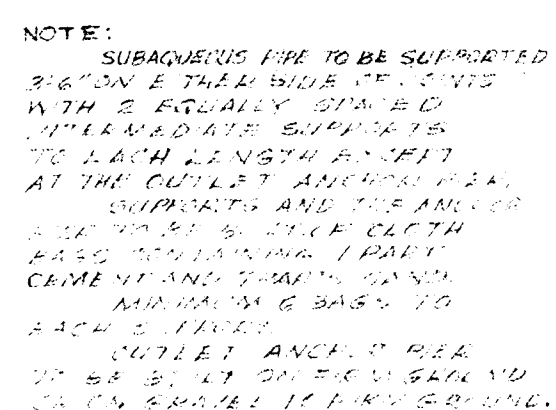 NOTE:
SUBAQUEOUS PIPE TO BE SUPPORTED
3'-6" ON EITHER SIDE OF JOINTS
WITH 2 EQUALLY SPACED
INTERMEDIATE SUPPORTS
TO EACH LENGTH EXCEPT
AT THE OUTLET ANCHOR PIER.
SUPPORTS AND THE ANCHOR
TO BE CLOTH
BAGS CONTAINING 1 PART
CEMENT AND PARTS SAND.
MINIMUM 6 BAGS TO
EACH SUPPORT.
OUTLET ANCHOR PIER
TO BE BUILT ON FIRM GROUND
OR ON GRAVEL TO FIRM GROUND.